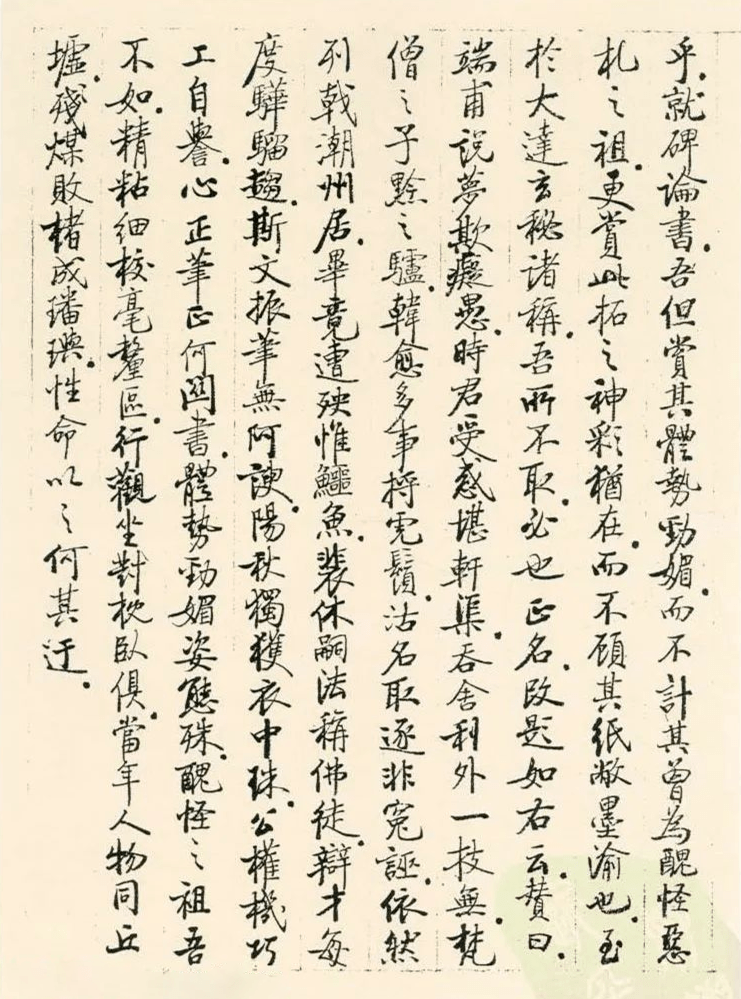 乎。就碑論書。吾但賞其體勢勁媚。而不計其曾為醜怪惡
札之祖。更賞此拓之神彩猶在。而不顧其紙敝墨渝也。至
於大達玄秘諸稱。吾所不取。必也正名。改題如右云。贊曰。
端甫說夢欺癡愚。時君受惑堪軒渠。吞舍利外一技無。梵
僧之子黔之驢。韓愈多事捋虎鬚。沽名取逐非冤誣。依然
列戟潮州居。畢竟遭殃惟鱷魚。裴休嗣法稱佛徒。辯才每
度驊騮趨。斯文振筆無阿諛。陽秋獨獲衣中珠。公權機巧
工自譽。心正筆正何關書。體勢勁媚姿態殊。醜怪之祖吾
不如。精粘細校毫釐區。行觀坐對枕臥俱。當年人物同丘
墟。殘煤敗楮成璠璵。性命以之何其迂。